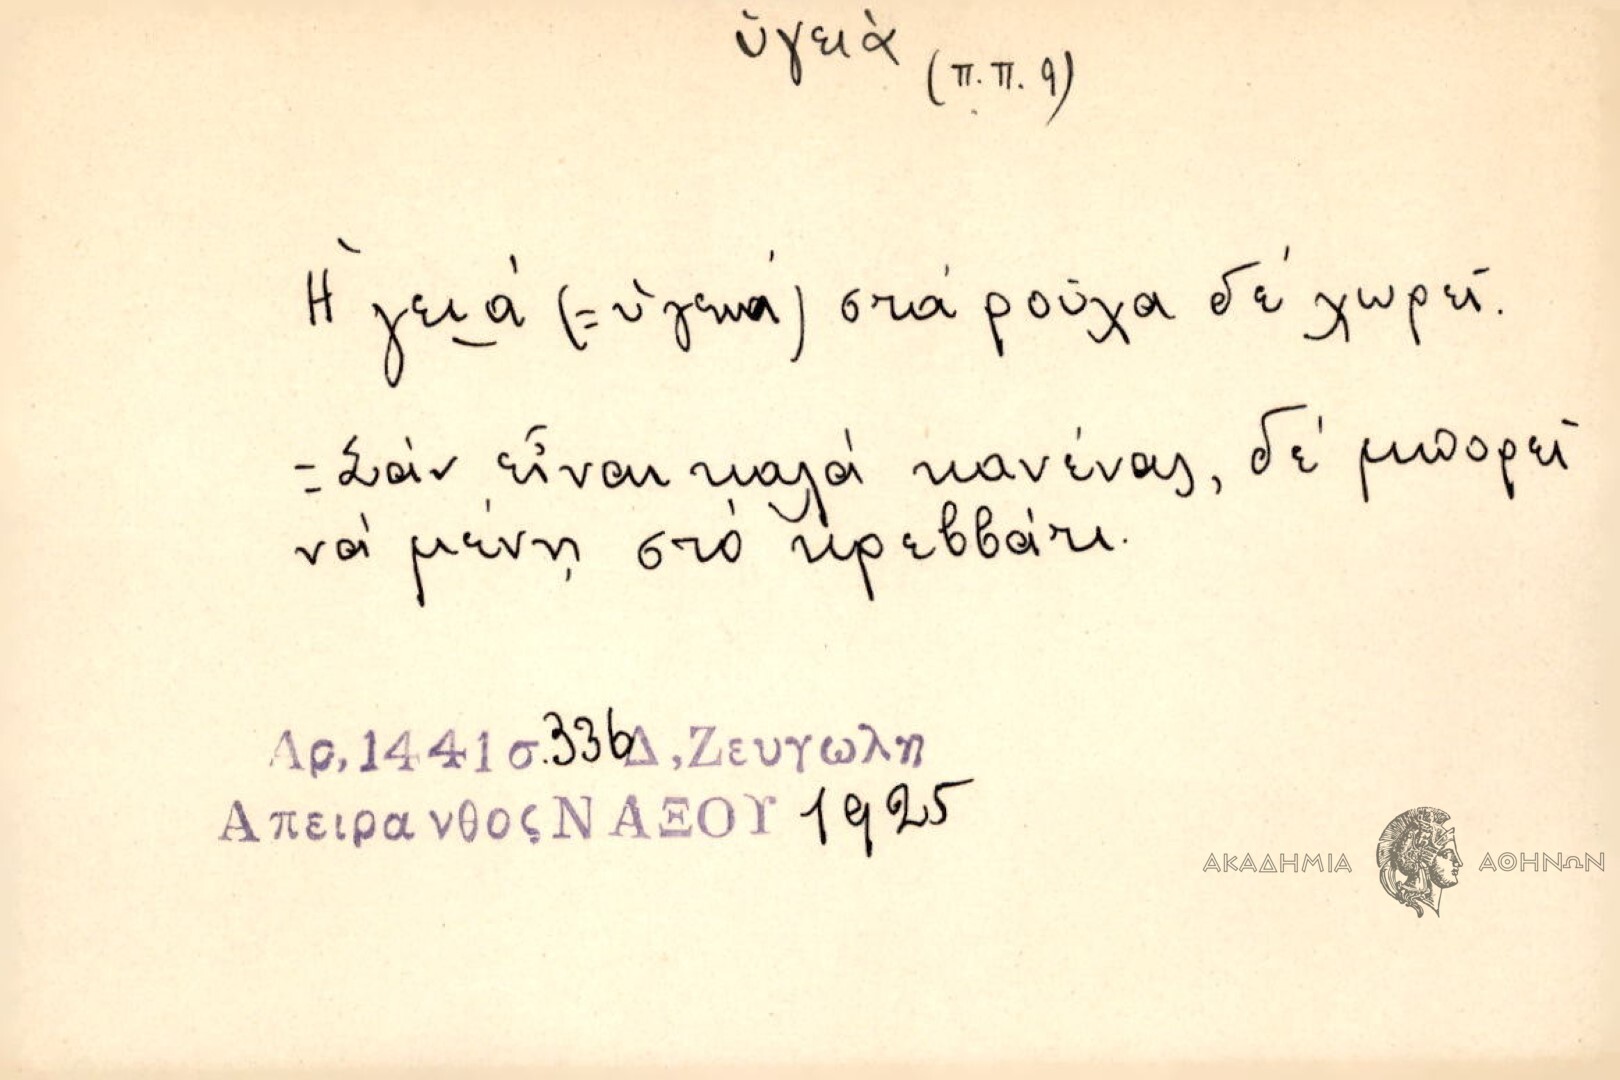 ὑγειὰ (π.π. 9)
Ἡ γειά (= ὑγειά) στά ροῦχα δέ χωρεῖ.
= Σάν εἶναι καλά κανένας, δέ μπορεῖ
νά μένῃ στό κρεββάτι.
Αρ, 1441 σ. 336 Δ, Ζευγωλη
Απειρανθος ΝΑΞΟΥ 1925
ΑΚΑΔΗΜΙΑ ΑΘΗΝΩΝ